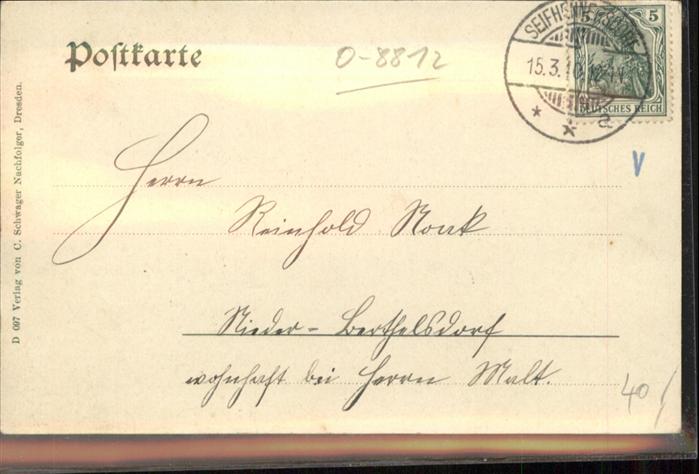 Postkarte
O-8812
SEIFHENNERSDORF
15.3.10.
a
5
DEUTSCHES REICH
V
Herrn
Reinhold Noak
Nieder-Berthelsdorf
wohnhaft bei Herrn Malt.
40
D 697 Verlag von C. Schwager Nachfolger, Dresden.